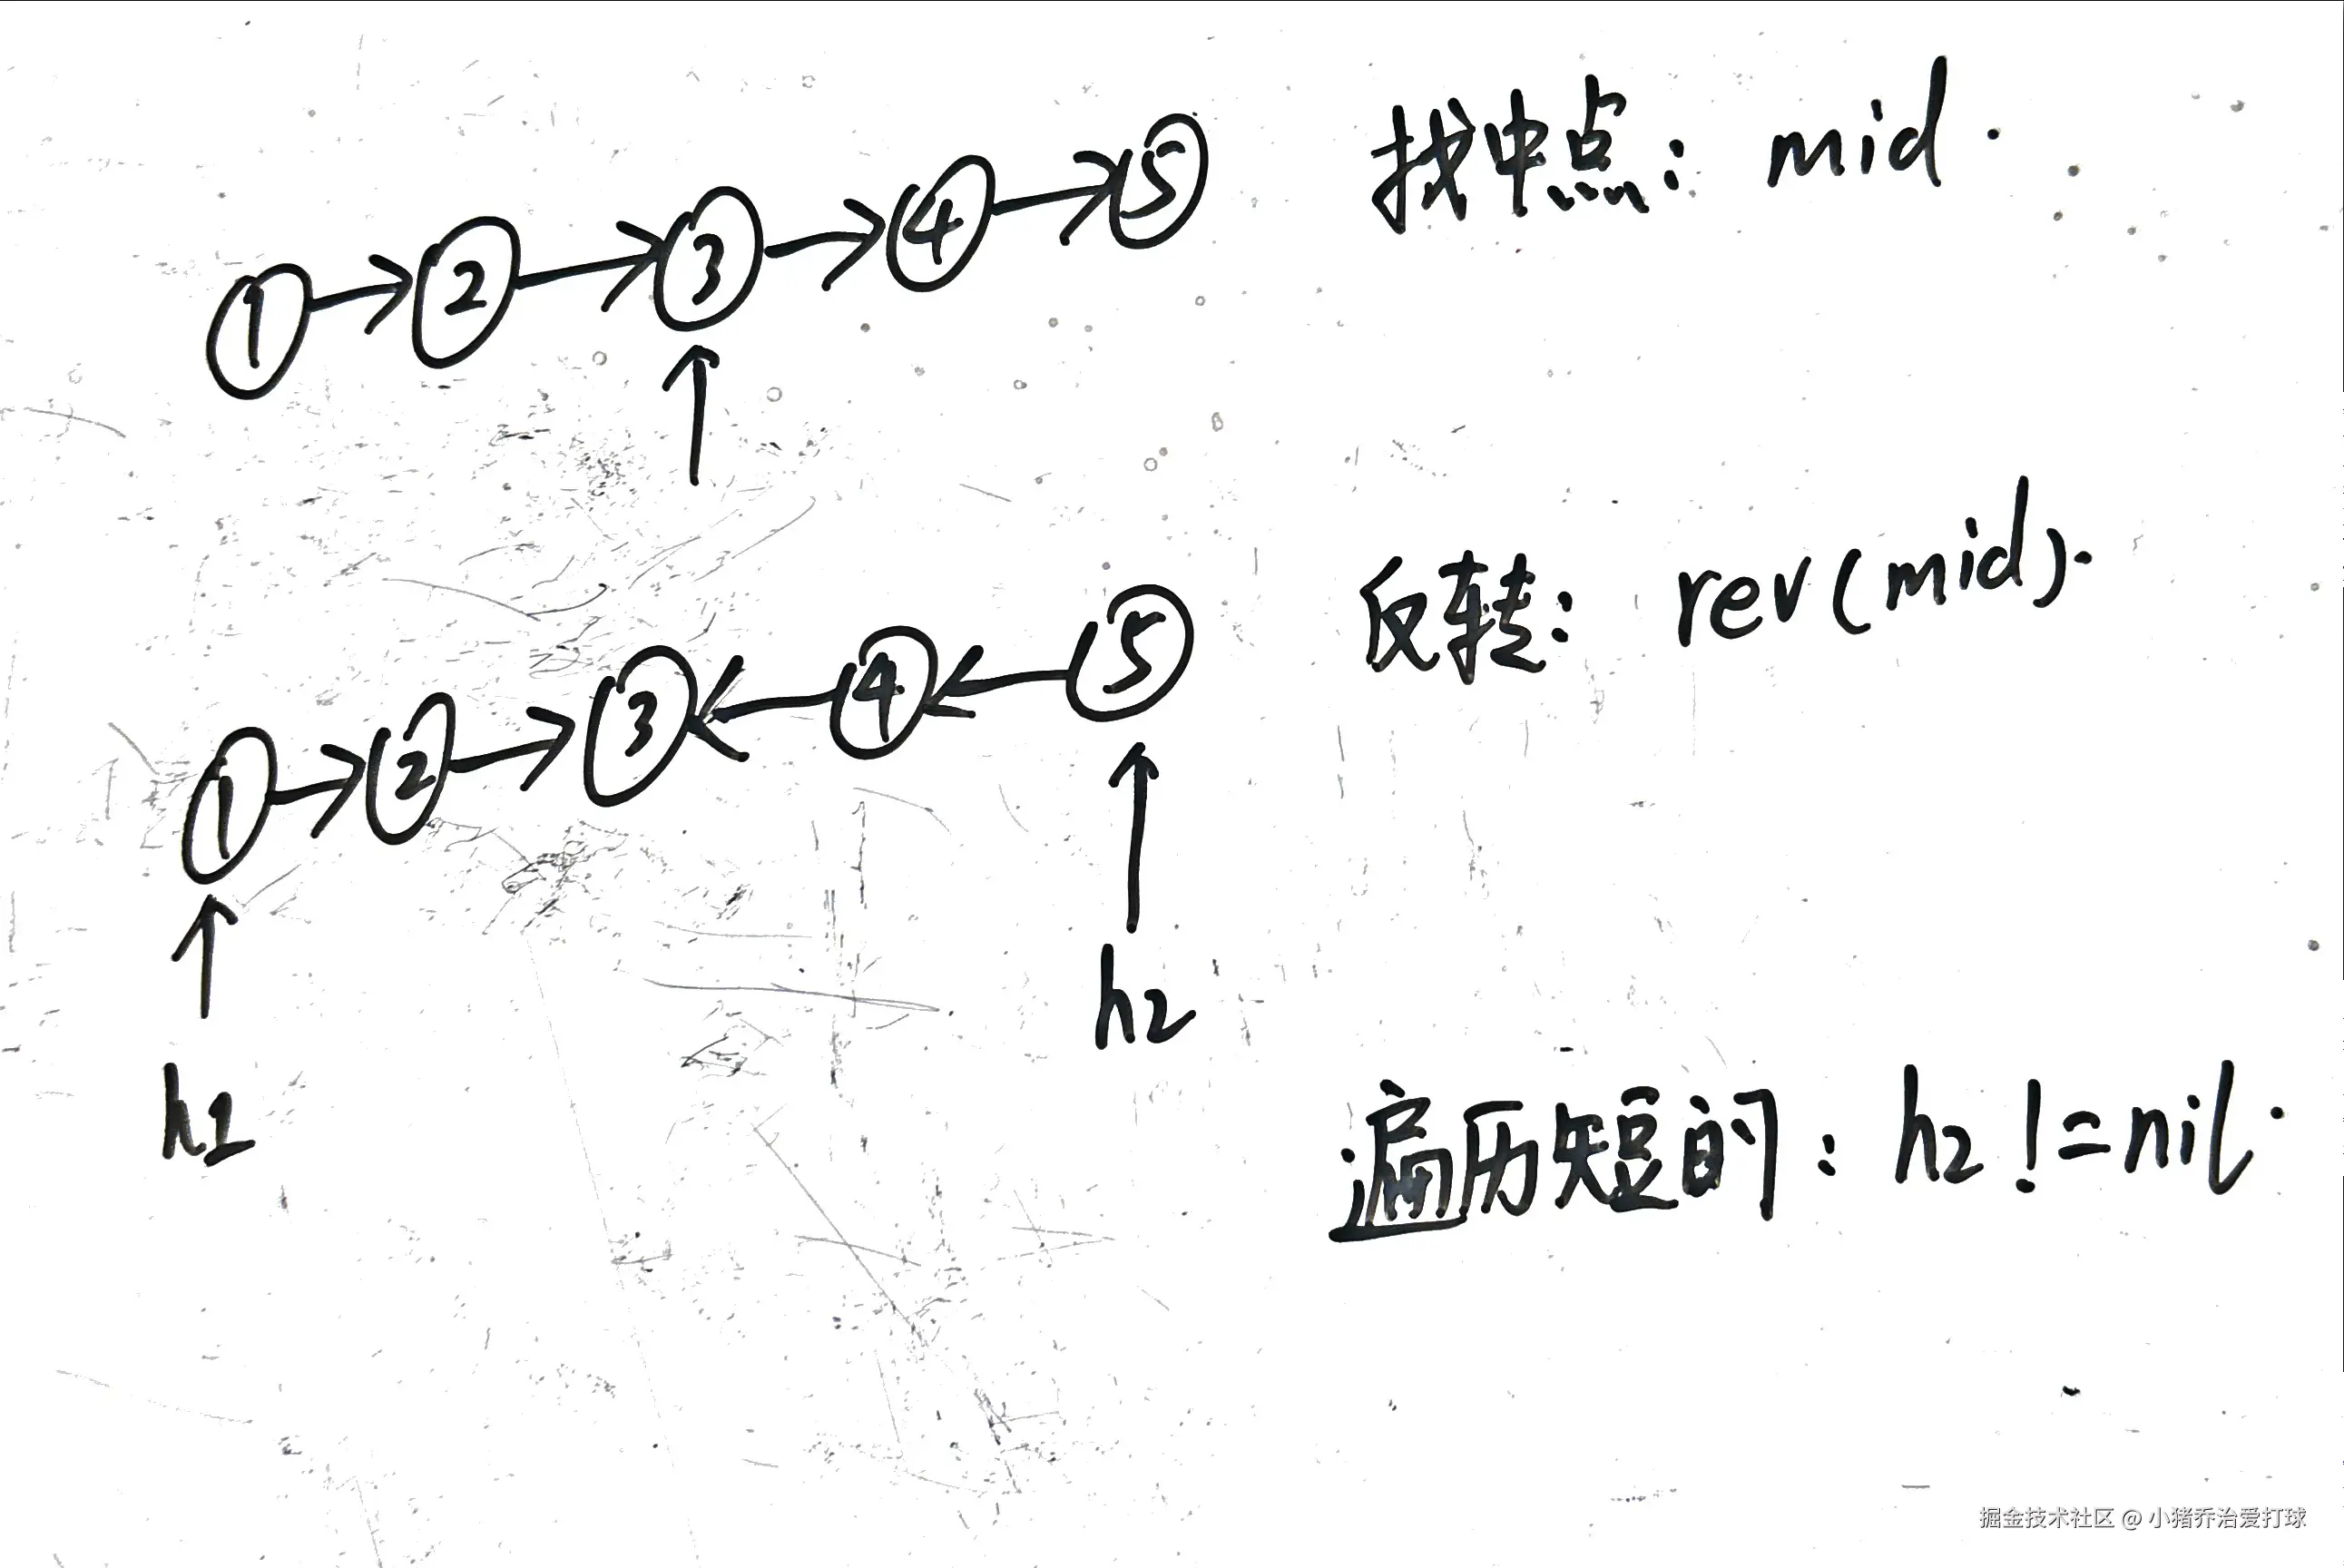 ① → ② → ③ → ④ → ⑤
找中点: mid.
↑
① → ② → ③ ← ④ ← ⑤
反转: rev(mid).
↑ ↑
h1 h2
遍历短的: h2 != nil.
掘金技术社区 @ 小猪乔治爱打球